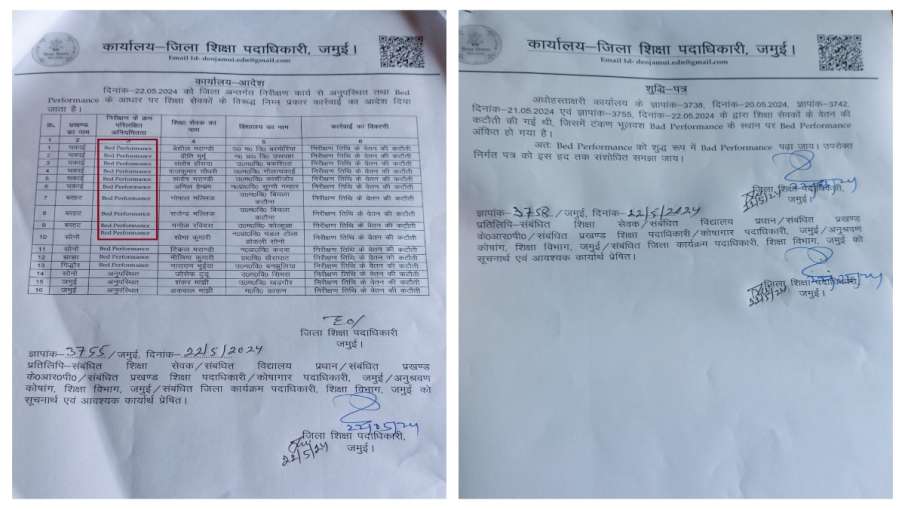 कार्यालय–जिला शिक्षा पदाधिकारी, जमुई।
Email Id- deojamui.edn@gmail.com
कार्यालय–आदेश
दिनांक–22.05.2024 को जिला अन्तर्गत निरीक्षण कार्य से अनुपस्थित तथा Bed
Performance के आधार पर शिक्षा सेवकों के विरूद्ध निम्न प्रकार कार्रवाई का आदेश दिया
जाता है।
क्र० प्रखण्ड का नाम निरीक्षण के क्रम परिलक्षित अनियमितता शिक्षा सेवक का नाम विद्यालय का नाम कार्रवाई का विवरणी
1 2 3 4 5 6
1 चकाई Bed Performance निरीक्षण तिथि के वेतन की कटौती
2 चकाई Bed Performance निरीक्षण तिथि के वेतन की कटौती
3 चकाई Bed Performance निरीक्षण तिथि के वेतन की कटौती
4 चकाई Bed Performance राजकुमार चौधरी निरीक्षण तिथि के वेतन की कटौती
5 चकाई Bed Performance निरीक्षण तिथि के वेतन की कटौती
6 चकाई Bed Performance अनिल हेम्ब्रम निरीक्षण तिथि के वेतन की कटौती
7 बरहट Bed Performance गोपाल मल्लिक निरीक्षण तिथि के वेतन की कटौती
8 बरहट Bed Performance राजेन्द्र मल्लिक निरीक्षण तिथि के वेतन की कटौती
9 बरहट Bed Performance मनोज रविदास निरीक्षण तिथि के वेतन की कटौती
10 सोनो Bed Performance सीमा कुमारी निरीक्षण तिथि के वेतन की कटौती
11 सोनो Bed Performance निरीक्षण तिथि के वेतन की कटौती
12 झाझा Bed Performance निरीक्षण तिथि के वेतन की कटौती
13 गिद्धौर Bed Performance निरीक्षण तिथि के वेतन की कटौती
14 सोनो अनुपस्थित निरीक्षण तिथि के वेतन की कटौती
15 जमुई अनुपस्थित शंकर मांझी निरीक्षण तिथि के वेतन की कटौती
16 जमुई अनुपस्थित निरीक्षण तिथि के वेतन की कटौती
जिला शिक्षा पदाधिकारी
जमुई।
ज्ञापांक–3755/जमुई, दिनांक–22/5/2024
प्रतिलिपि–संबंधित शिक्षा सेवक/संबंधित विद्यालय प्रधान/संबंधित प्रखण्ड
के०आर०पी०/संबंधित प्रखण्ड शिक्षा पदाधिकारी/कोषागार पदाधिकारी, जमुई/अनुश्रवण
कोषांग, शिक्षा विभाग, जमुई/संबंधित जिला कार्यक्रम पदाधिकारी, शिक्षा विभाग, जमुई को
सूचनार्थ एवं आवश्यक कार्यार्थ प्रेषित।
22/05/24
जिला शिक्षा पदाधिकारी,
जमुई।
22/5/24
कार्यालय–जिला शिक्षा पदाधिकारी, जमुई।
Email Id- deojamui.edn@gmail.com
शुद्धि–पत्र
अधोहस्ताक्षरी कार्यालय के ज्ञापांक–3738, दिनांक–20.05.2024, ज्ञापांक–3742,
दिनांक–21.05.2024 एवं ज्ञापांक–3755, दिनांक–22.05.2024 के द्वारा शिक्षा सेवकों के वेतन की
कटौती की गई थी, जिसमें टंकण भूलवश Bad Performance के स्थान पर Bed Performance
अंकित हो गया है।
अतः Bed Performance को शुद्ध रूप में Bad Performance पढ़ा जाय। उपरोक्त
निर्गत पत्र को इस हद तक संशोधित समझा जाय।
जिला शिक्षा पदाधिकारी,
जमुई।
ज्ञापांक–3758/जमुई, दिनांक–22/5/2024
प्रतिलिपि–संबंधित शिक्षा सेवक/संबंधित विद्यालय प्रधान/संबंधित प्रखण्ड
के०आर०पी०/संबंधित प्रखण्ड शिक्षा पदाधिकारी/कोषागार पदाधिकारी, जमुई/अनुश्रवण
कोषांग, शिक्षा विभाग, जमुई/संबंधित जिला कार्यक्रम पदाधिकारी, शिक्षा विभाग, जमुई को
सूचनार्थ एवं आवश्यक कार्यार्थ प्रेषित।
जिला शिक्षा पदाधिकारी,
जमुई।